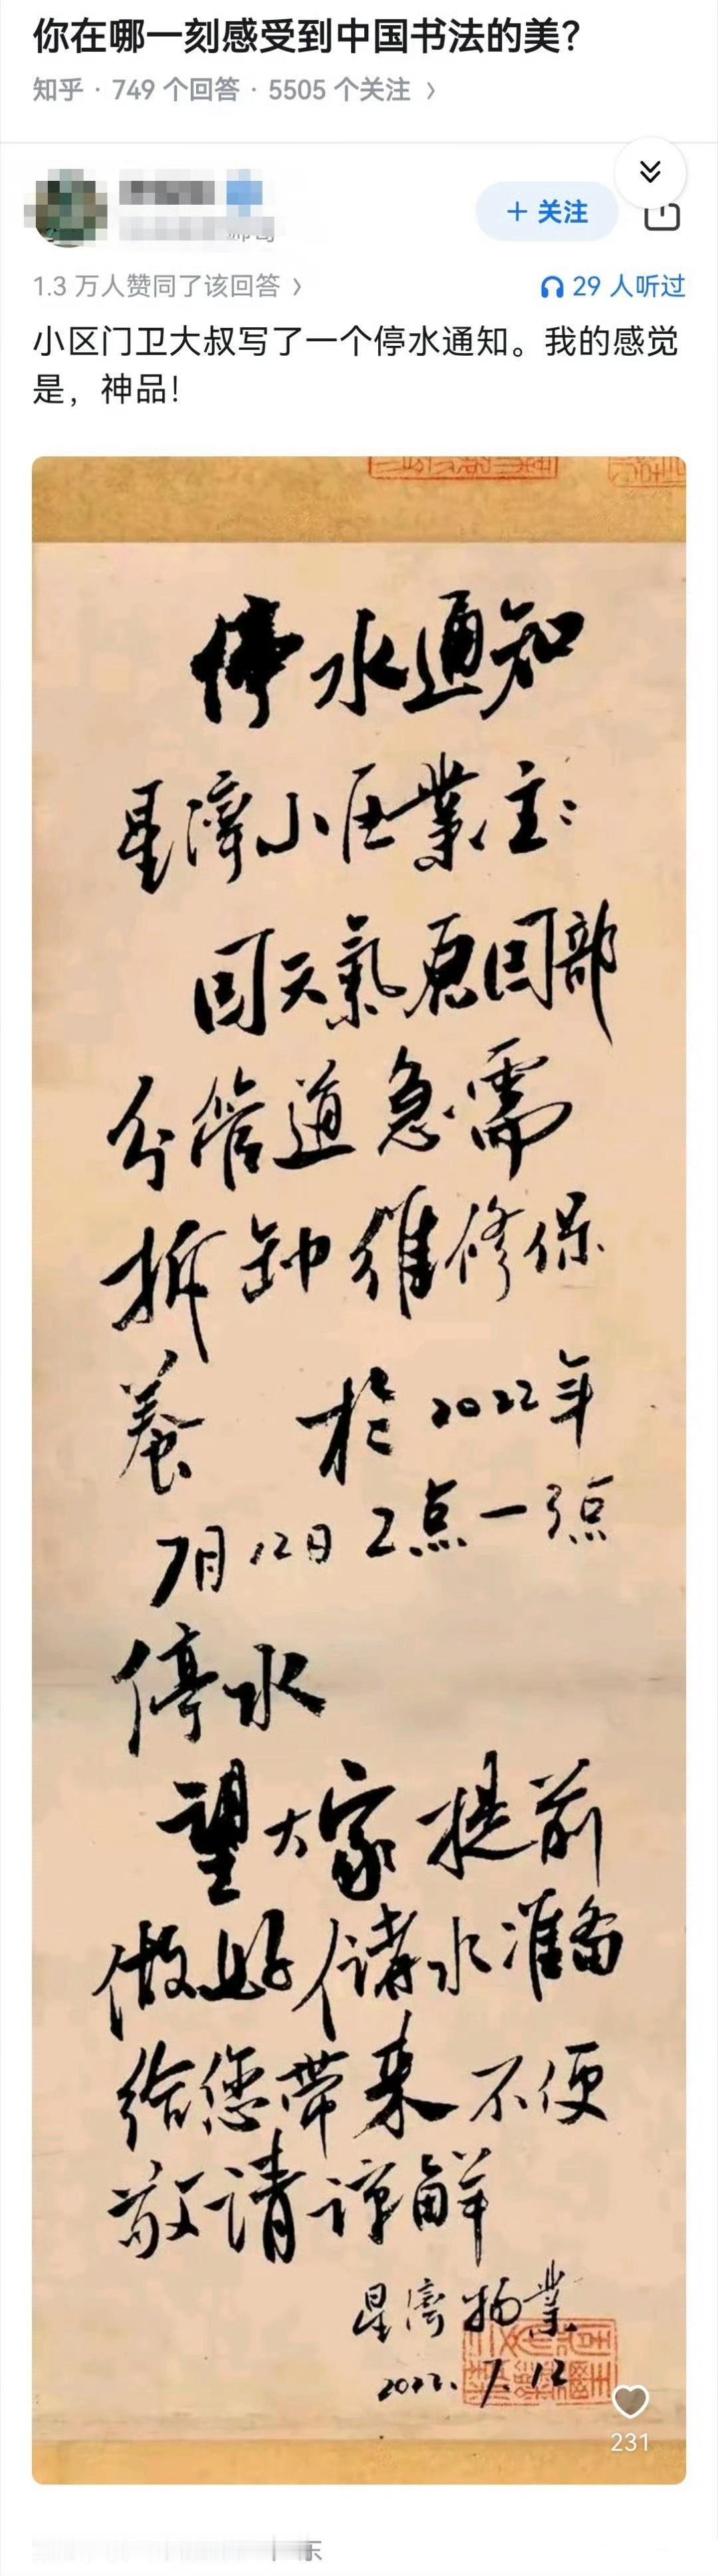 你在哪一刻感受到中国书法的美？
知乎 · 749 个回答 · 5505 个关注 >
+ 关注
1.3 万人赞同了该回答 >
29 人听过
小区门卫大叔写了一个停水通知。我的感觉
是，神品！
停水通知
星濟小区業主：
因天氣原因部
分管道急需
拆卸維修保
養 於2022年
7月12日2点一3点
停水
望大家提前
做好储水準备
给您带来不便
敬请谅解
星濟物業
2022.7.12
231